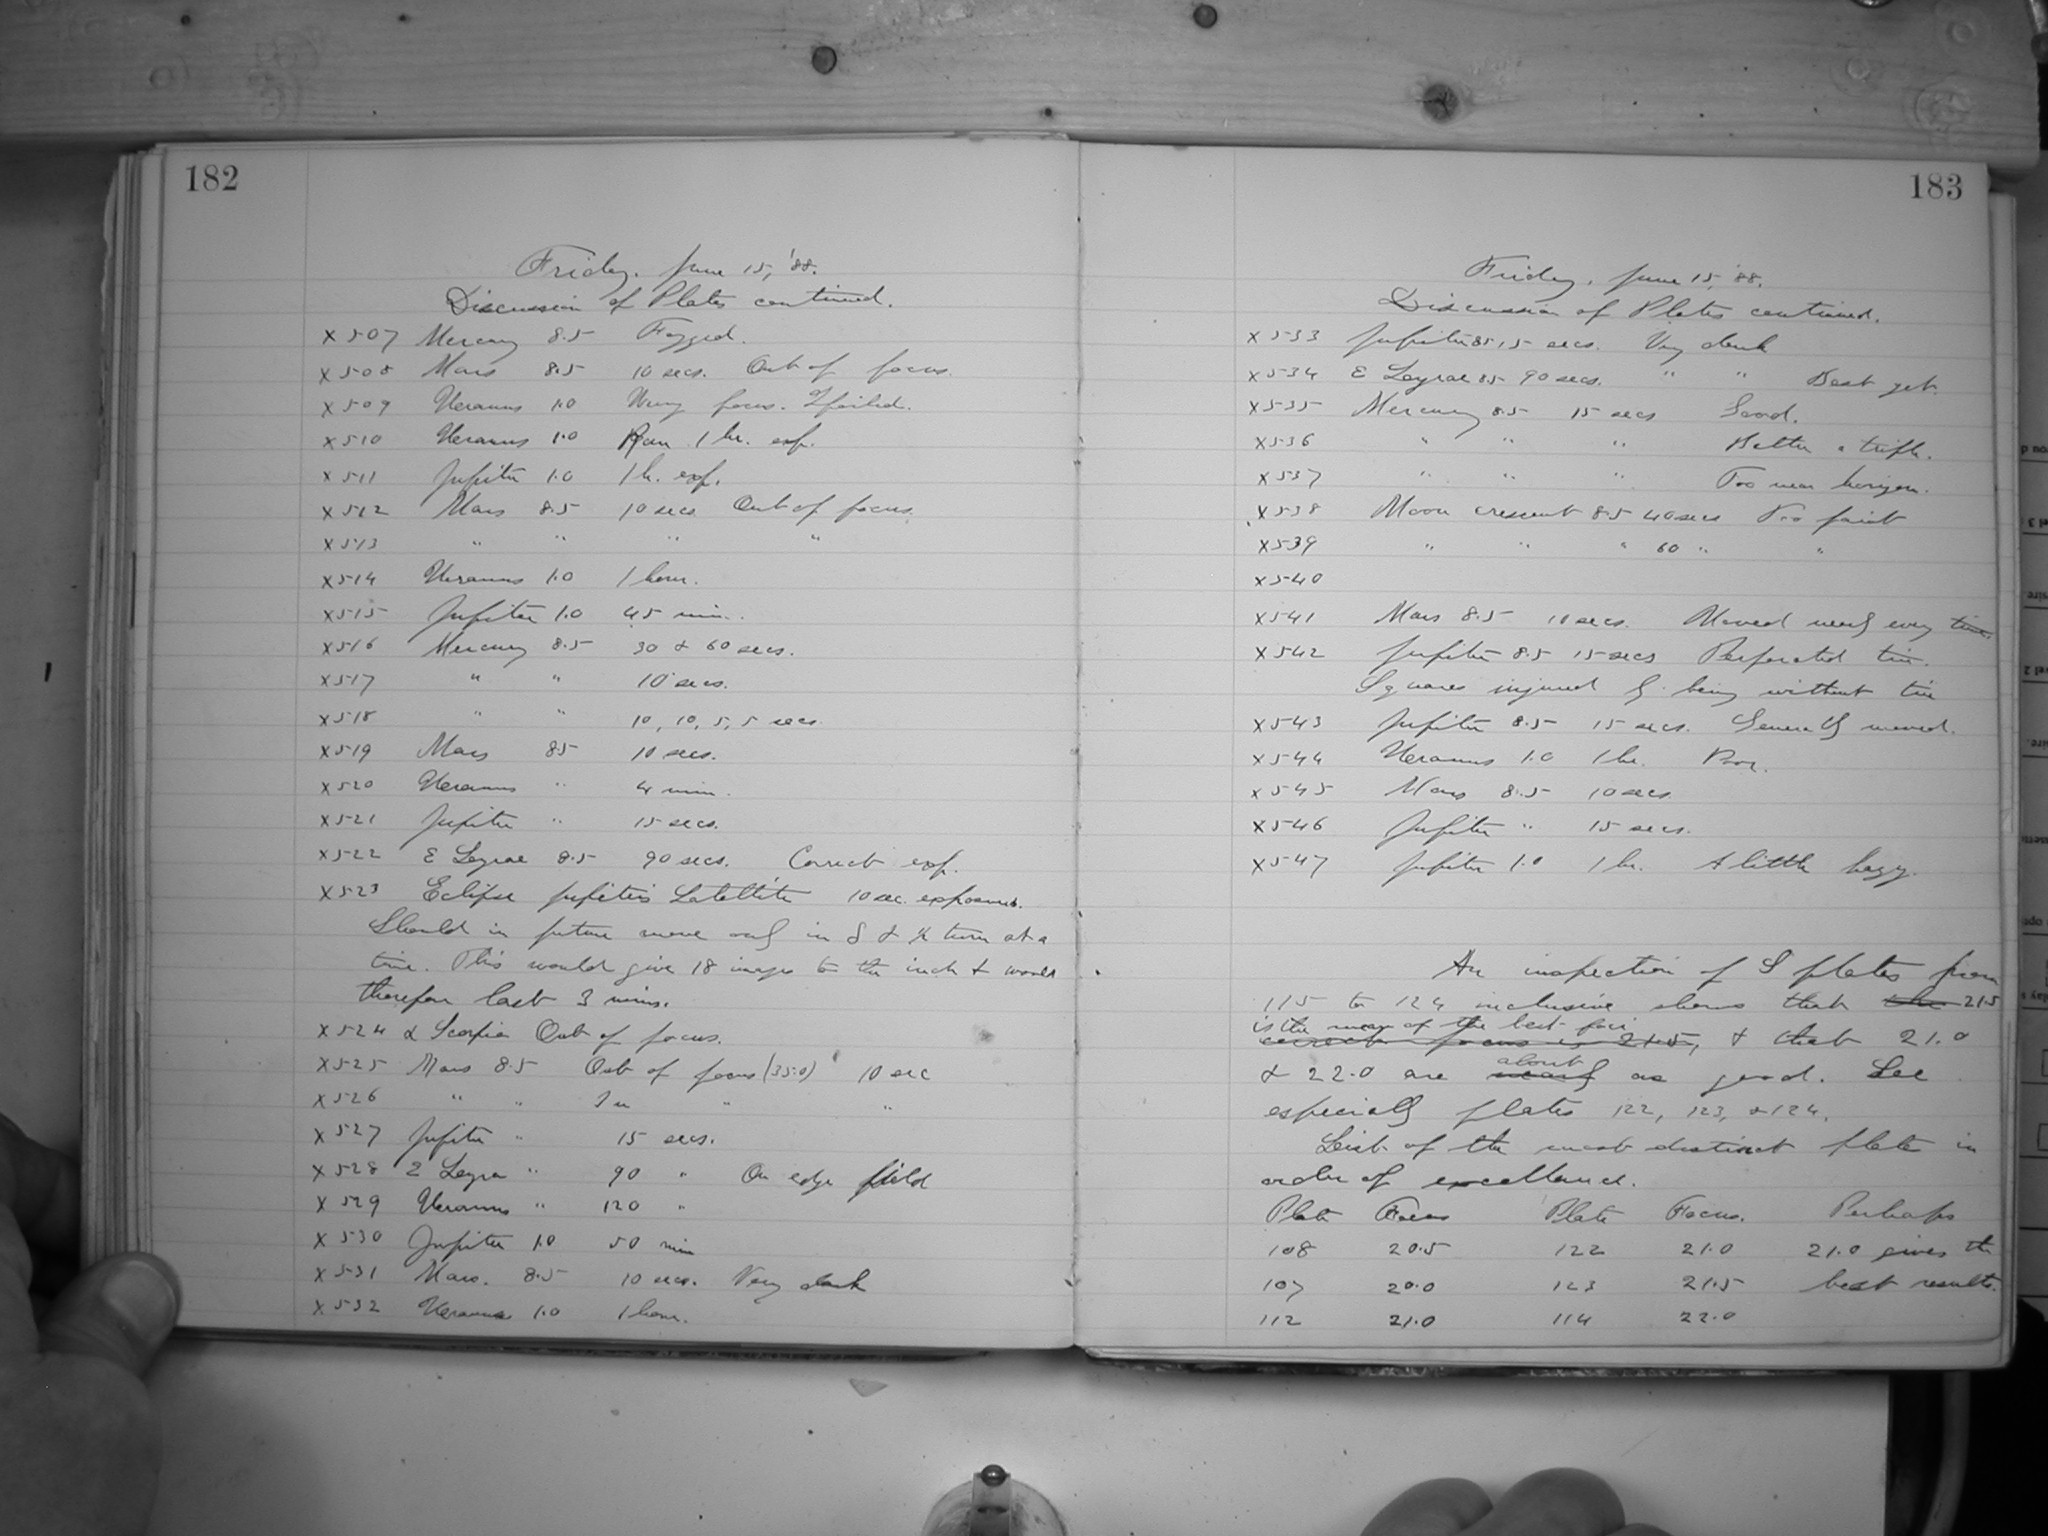 182
Friday, June 15, '88.
Discussion of Plates continued.
X 507 Mercury 8.5 Fogged.
X 508 Mars 8.5 10 secs. Out of focus.
X 509 Uranus 1.0 Wrong focus. I failed.
X 510 Uranus 1.0 Ran 1 hr. exp.
X 511 Jupiter 1.0 1 h. exp.
X 512 Mars 8.5 10 secs Out of focus.
X 513 " " " "
X 514 Uranus 1.0 1 hour.
X 515 Jupiter 1.0 45 min.
X 516 Mercury 8.5 30 & 60 secs.
X 517 " " 10 secs.
X 518 " " 10, 10, 5, 5 secs.
X 519 Mars 8.5 10 secs.
X 520 Uranus " 4 min.
X 521 Jupiter " 15 secs.
X 522 ε Lyrae 8.5 90 secs. Correct exp.
X 523 Eclipse Jupiter's Satellite 10 sec. exposures.
Should in future move only in δ & ½ turn at a
time. This would give 18 images to the inch & would
therefore last 3 mins.
X 524 α Scorpii Out of focus.
X 525 Mars 8.5 Out of focus (35.0) 10 sec
X 526 " " In " "
X 527 Jupiter " 15 secs.
X 528 Lyra " 90 " On edge field
X 529 Uranus " 120 "
X 530 Jupiter 1.0 50 min
X 531 Mars. 8.5 10 secs. Very dark
X 532 Uranus 1.0 1 hour.
183
Friday, June 15, '88.
Discussion of Plates continued.
X 533 Jupiter 8.5 15 secs. Very dark
X 534 ε Lyrae 8.5 90 secs. " " Best yet.
X 535 Mercury 8.5 15 secs Good.
X 536 " " " Better a trifle.
X 537 " " " Too near horizon.
X 538 Moon crescent 8.5 40 secs Too faint
X 539 " " " 60 " "
X 540
X 541 Mars 8.5 10 secs. Moved nearly every time.
X 542 Jupiter 8.5 15 secs Perforated tin.
Squares injured by being without tin
X 543 Jupiter 8.5 15 secs. Generally moved.
X 544 Uranus 1.0 1 hr. Poor.
X 545 Mars 8.5 10 secs
X 546 Jupiter " 15 secs.
X 547 Jupiter 1.0 1 hr. A little hazy.
An inspection of S plates from
115 to 124 inclusive shows that the 21.5
is the mean of the best foci
correct focus is 21.5, & that 21.0
about
& 22.0 are nearly as good. See
especially plates 122, 123, & 124.
List of the most distinct plates in
order of excellence.
Plate Focus Plate Focus. Perhaps
108 20.5 122 21.0 21.0 gives the
107 20.0 123 21.5 best results.
112 21.0 114 22.0